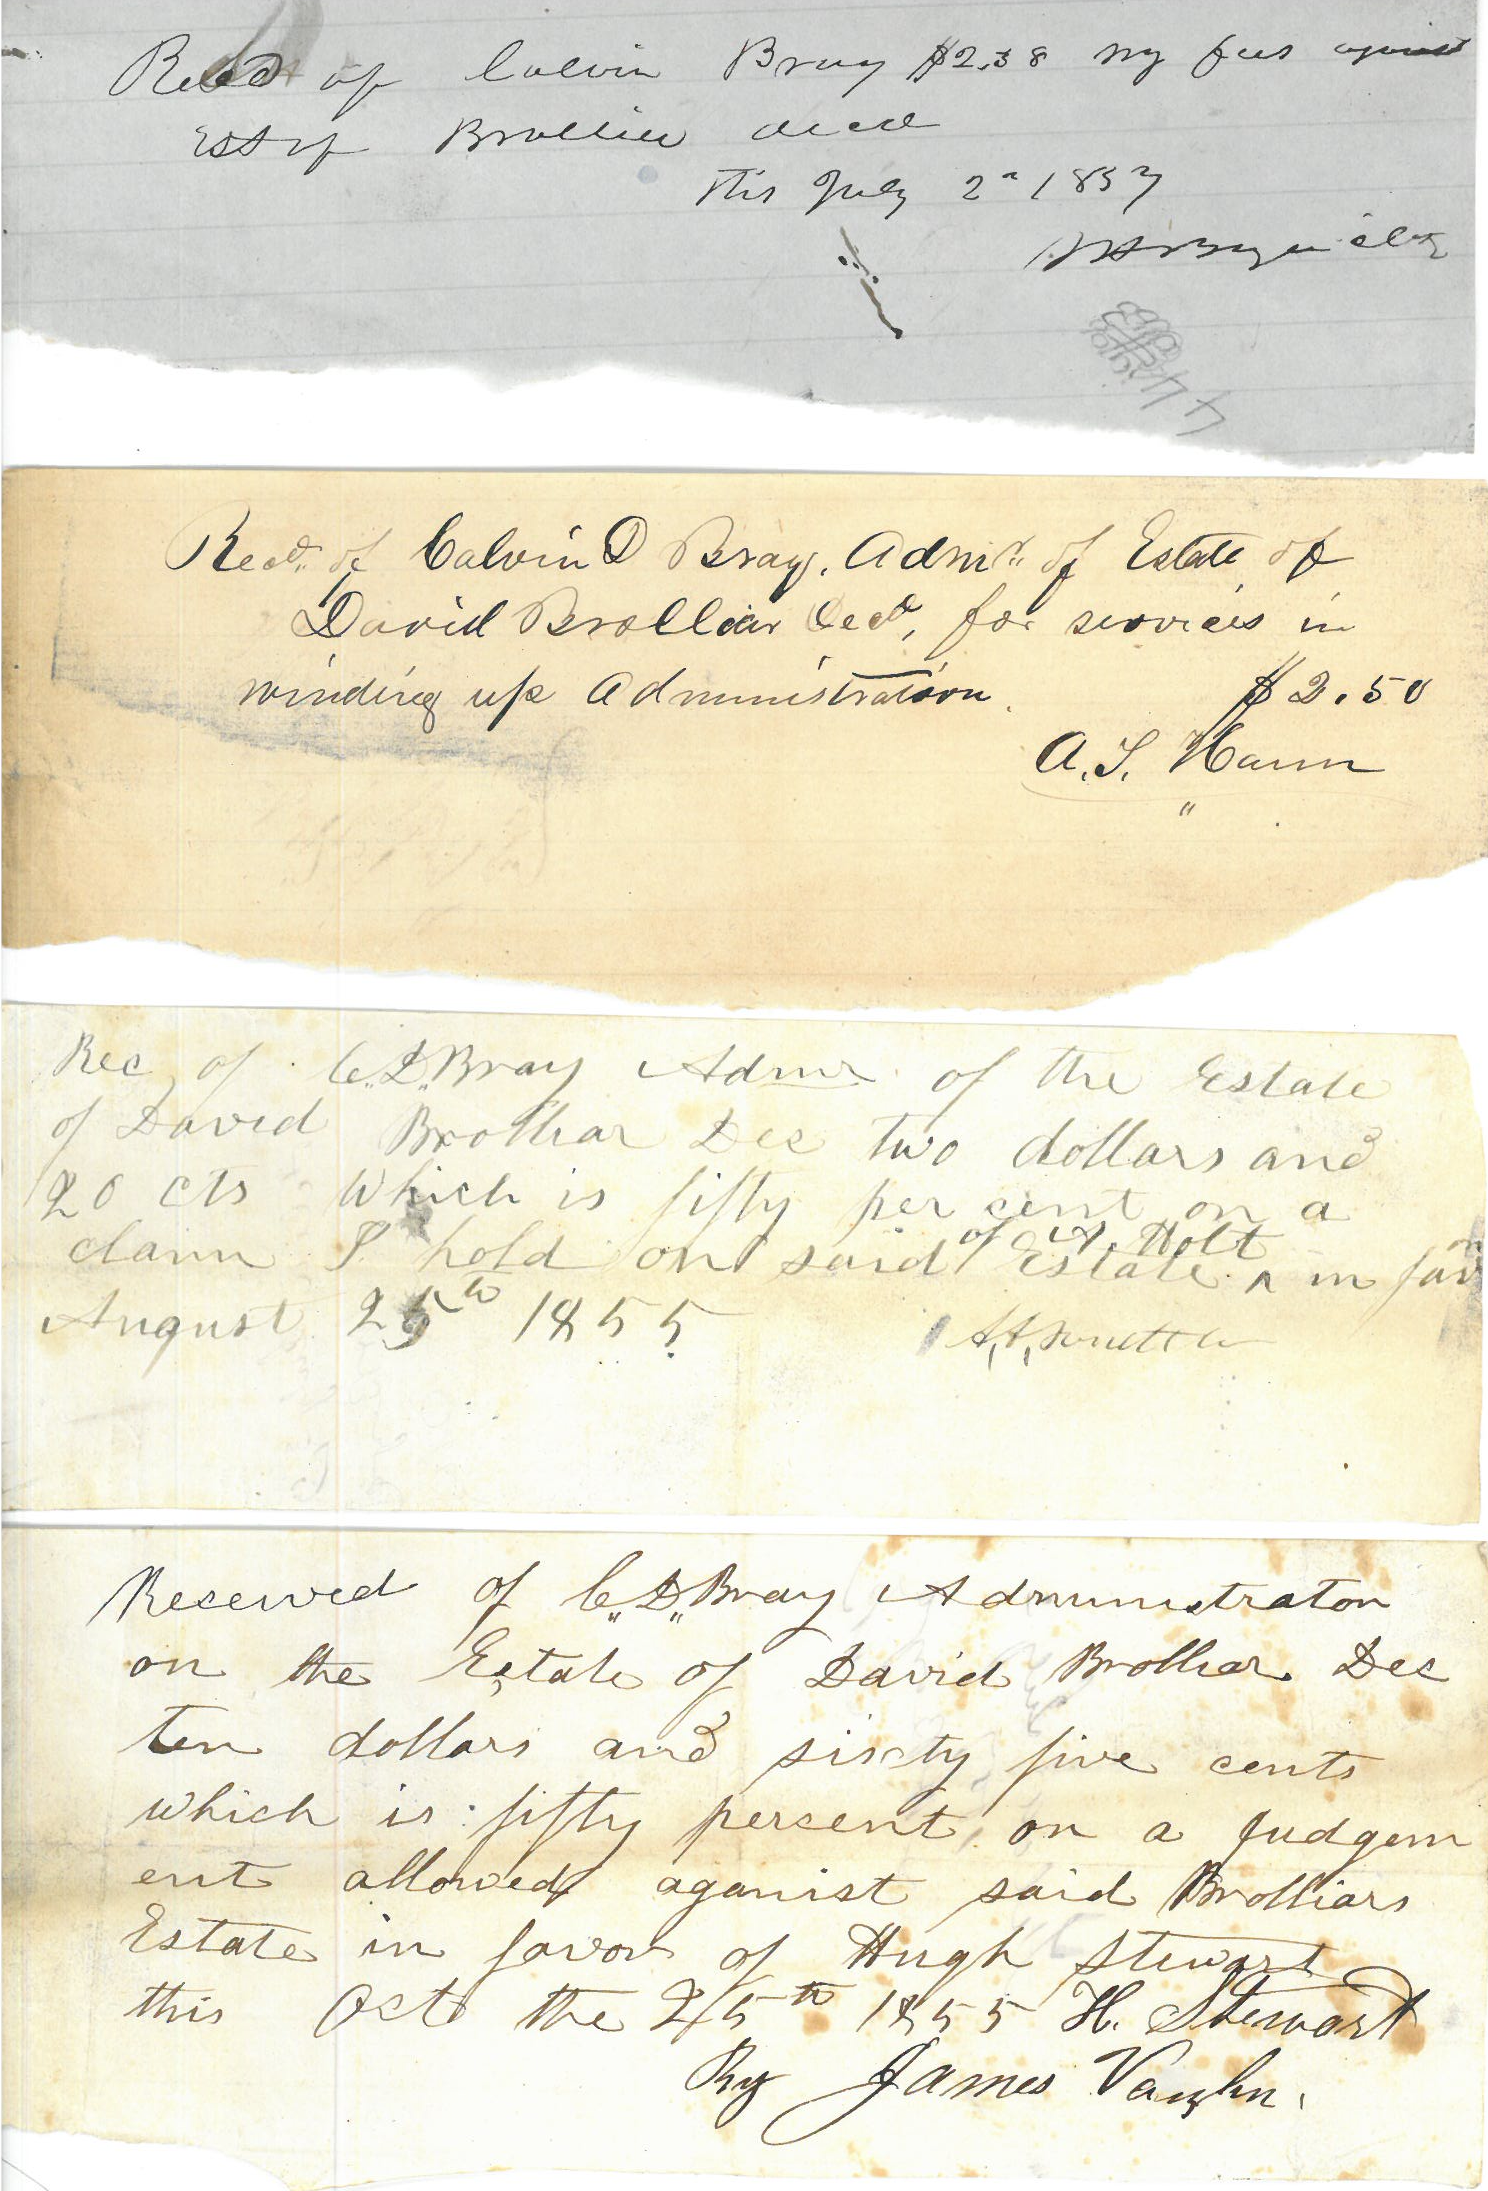 Recd of Calvin Bray $2.38 my fees against
Est of Brollier decd
This July 2d 1857
Recd. of Calvin D Bray. Admr. of Estate of
David Brolliar Decd, for services in
winding up Administration. $2.50
A. S. Hann
Rec of C. D. Bray Admr of the Estate
of David Brolliar Dec two dollars and
20 cts Which is fifty per cent on a
claim I hold on said Estate ^ in favor
of A. Holt
August 25th 1855
Receieved of C. D. Bray Administrator
on the Estate of David Brolliar Dec
ten dollars and sixty five cents
which is fifty percent on a Judgem
ent allowed aganist said Brolliars
Estate in favor of Hugh Stewart
this Oct the 25th 1855 H. Stewart
By James Vaughn.